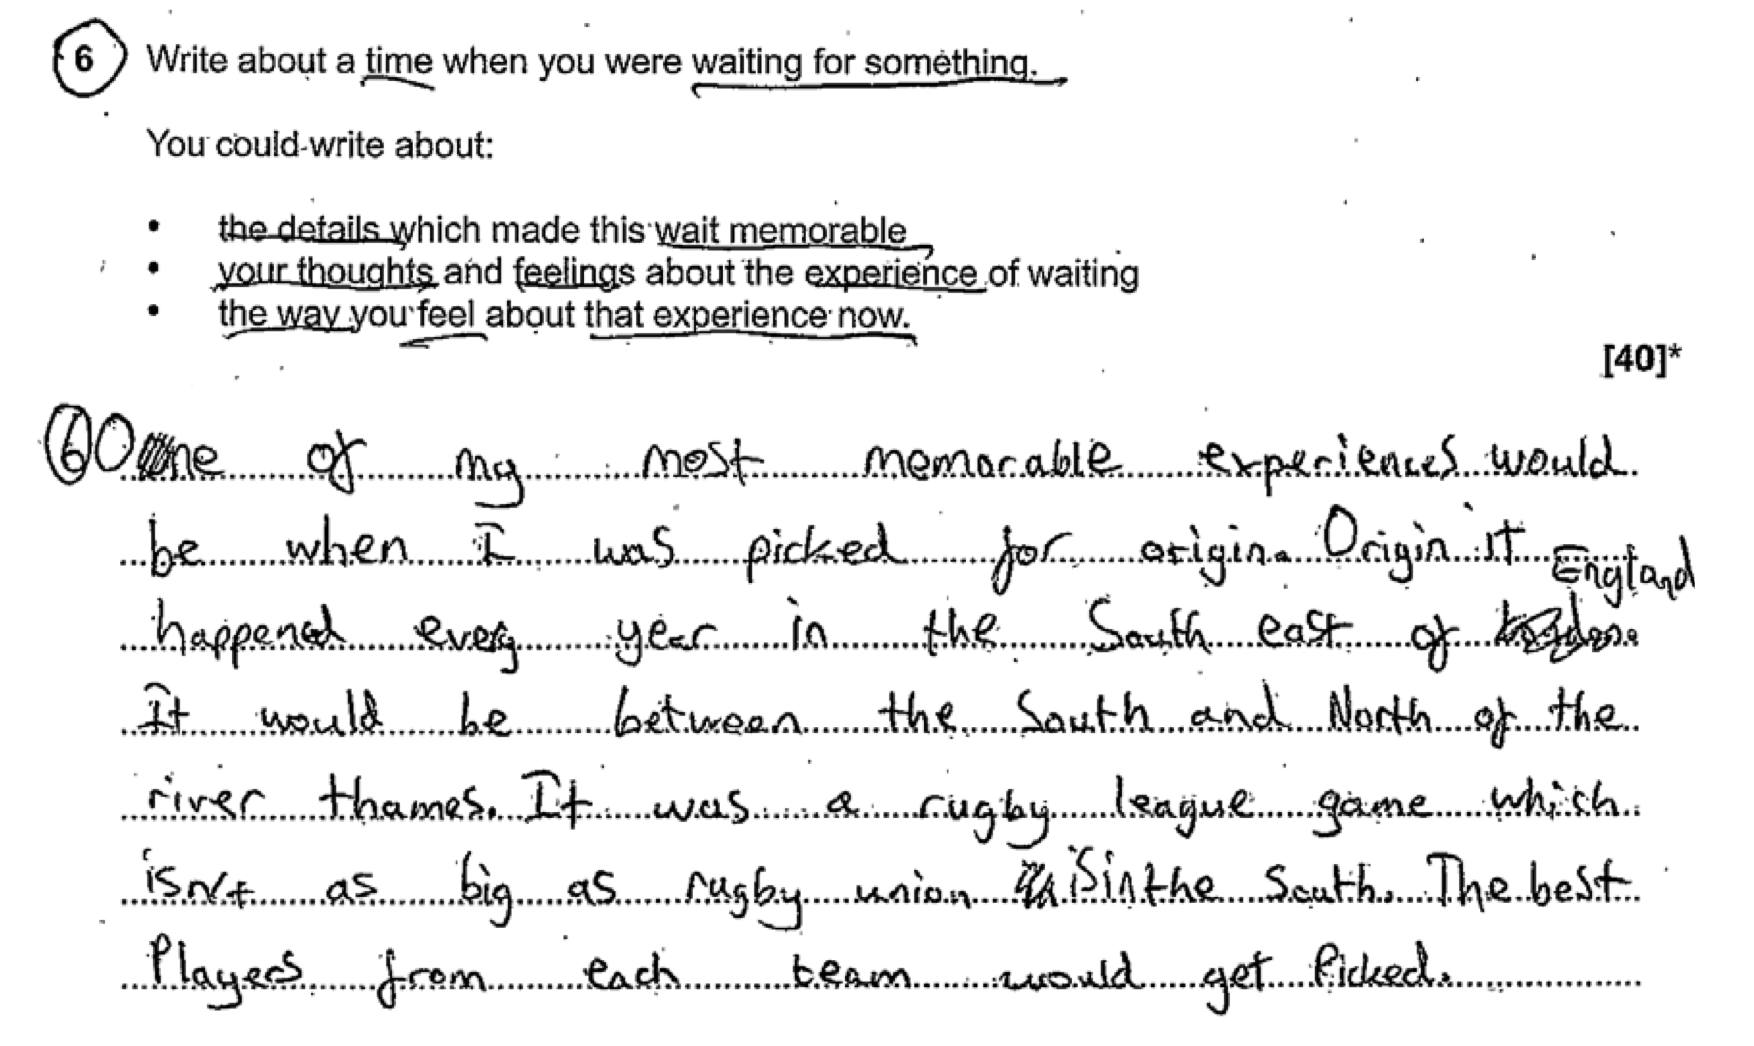 6 Write about a time when you were waiting for something.
You could write about:
• the details which made this wait memorable
• your thoughts and feelings about the experience of waiting
• the way you feel about that experience now.
[40]*
6 One of my most memorable experiences would
be when I was picked for origin. Origin it
happened every year in the South east of England
It would be between the South and North of the
river thames. It was a rugby league game which
isn't as big as rugby union is in the South. The best
Players from each team would get Picked.